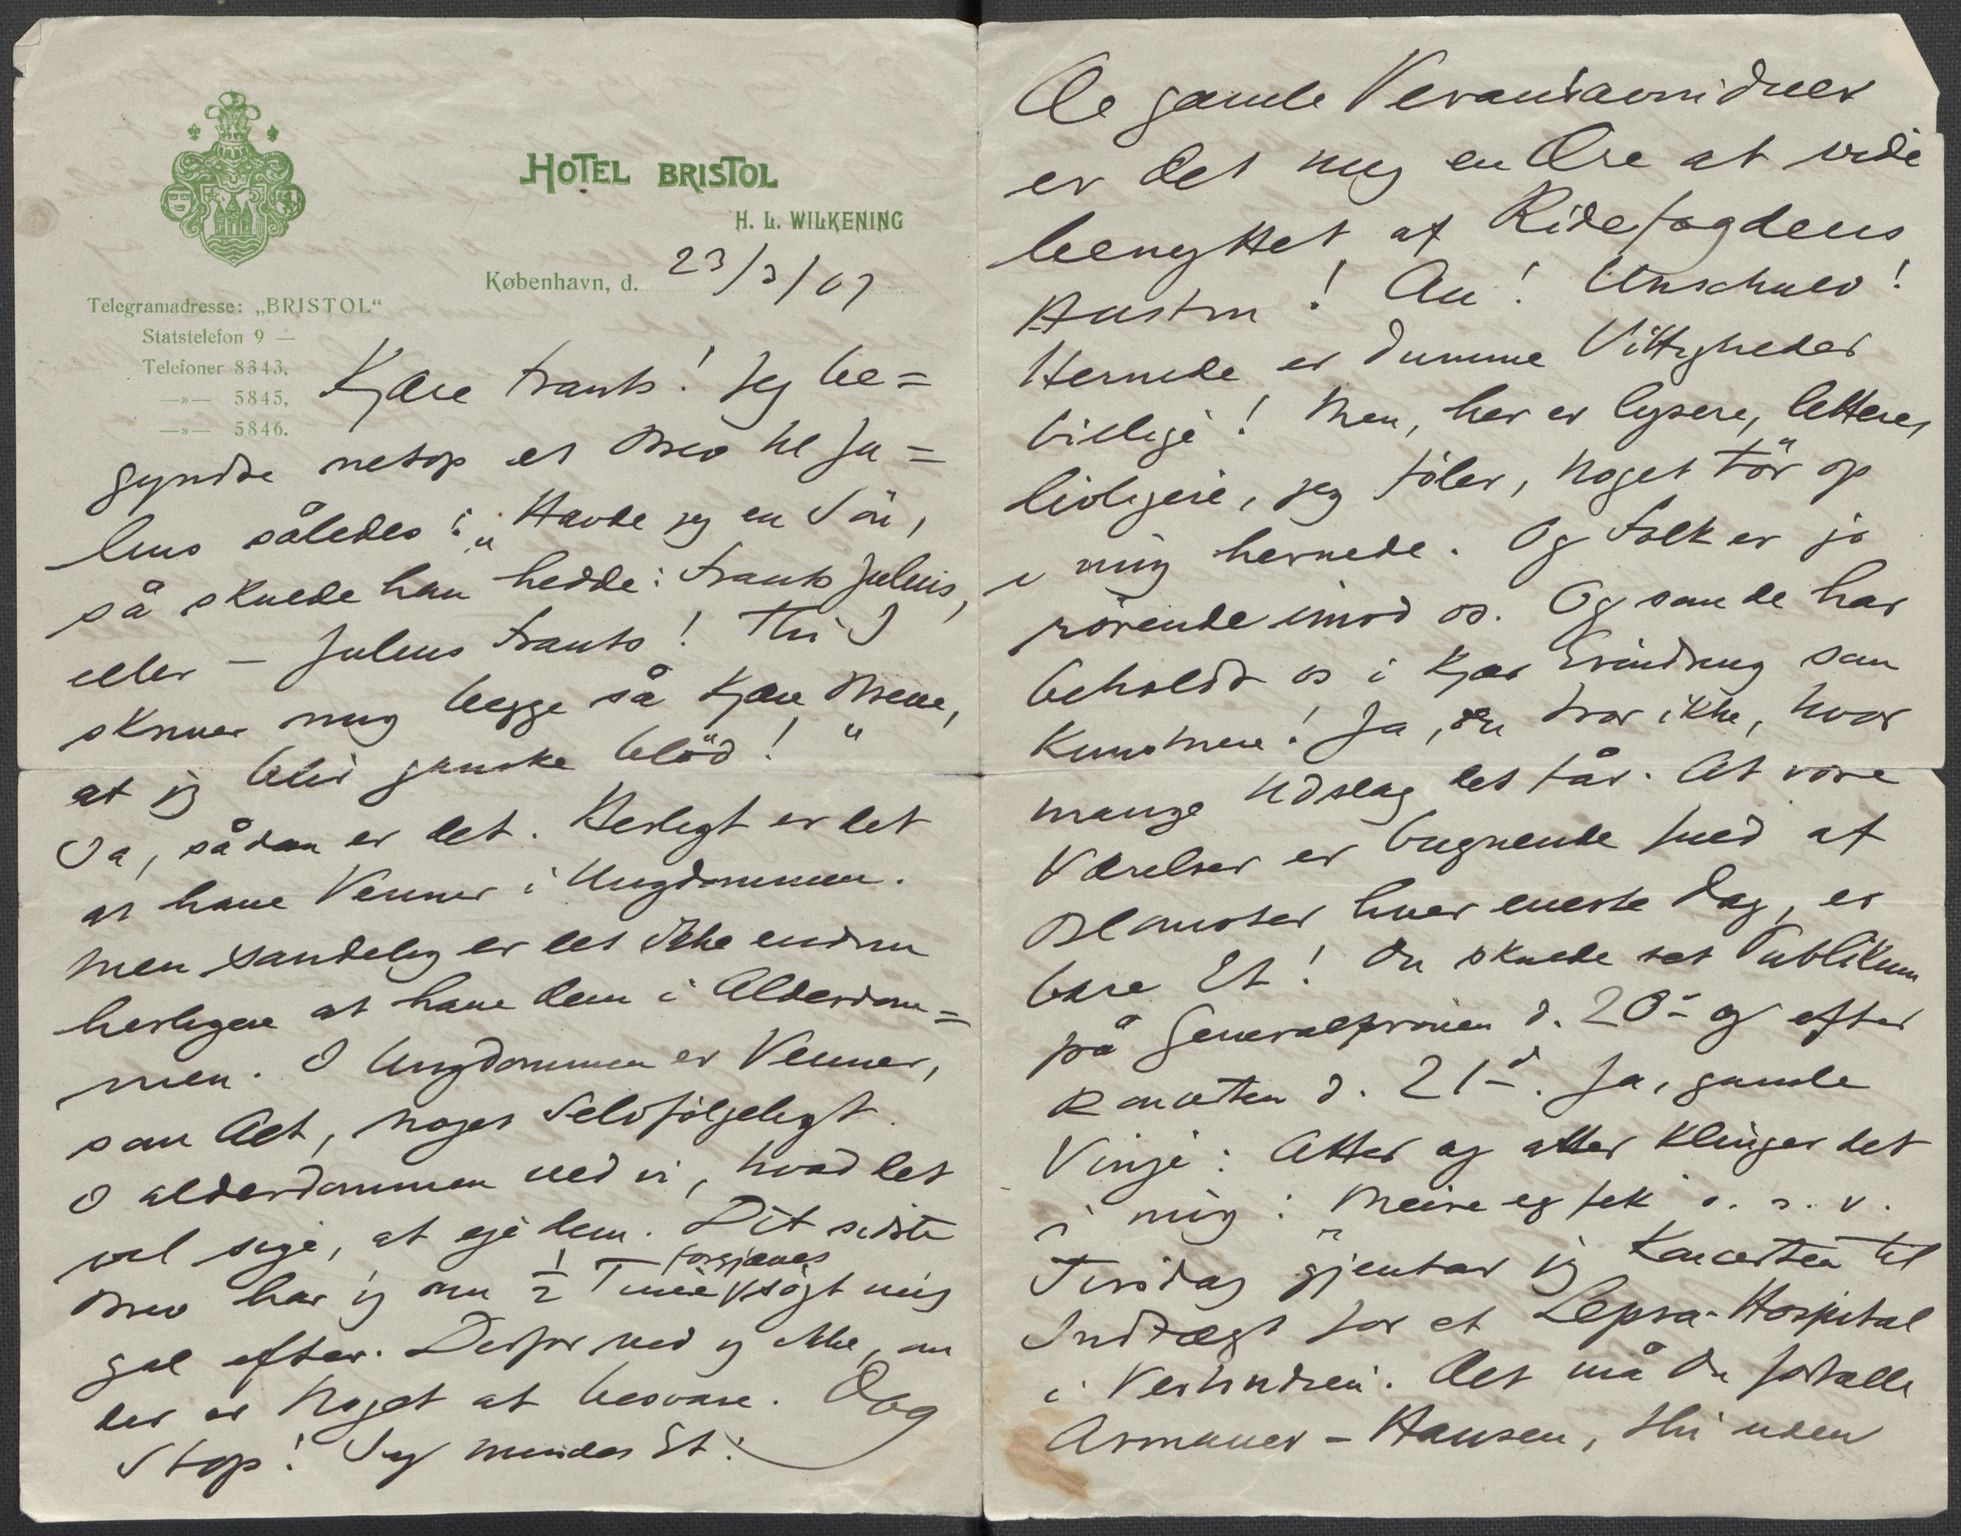 HOTEL BRISTOL
H. L. WILKENING
København, d. 23/3/07
Telegramadresse: „BRISTOL“
Statstelefon 9 —
Telefoner 8343,
—»— 5845,
—»— 5846.
Kjære Frants! Jeg be=
gyndte netop et Brev til Ju=
lius således: „Havde jeg en Sön,
så skulde han hedde: Frants Julius,
eller — Julius Frants! Thi I
skriver mig begge så kjære Breve,
at jeg blir ganske blöd!“
Ja, sådan er det. Herligt er det
at have Venner i Ungdommen.
Men sandelig er det ikke endnu
herligere at have dem i Alderdom=
men. I Ungdommen er Venner,
som Alt, noget Selvfölgeligt.
I Alderdommen ved vi, hvad det
vil sige, at eje dem. Dit sidste
Brev har jeg nu ½ Time forgjæves søgt mig
gal efter. Derfor ved jeg ikke, om
der er Noget at besvare. Dog
Stop! Jeg mindes Et:
De gamle
er det mig en Ære at vide
benyttet af Ridefogdens
Hustru! Au! Unschuld!
Hernede er dumme Vittigheder
billige! Men, her er lysere, lettere,
livligere, jeg föler, Noget tör op
i mig hernede. Og Folk er jo
rörende imod os. Og som de har
beholdt os i kjær Erindring som
Kunstnere! Ja, du tror ikke, hvor
mange Udslag det får. At vore
Værelser er bugnende fuld af
Blomster hver eneste Dag, er
bare Et! Du skulde set Publikum
på Generalprøven d. 20- og efter
Koncerten d. 21-. Ja, gamle
Vinje: Atter og atter klinger det
i mig: „Meire eg fek“ o. s. v.
Tirsdag gjentar jeg Koncerten til
Indtægt for et Lepra-Hospital
i Vestindien. Det må du fortælle
Armauer-Hansen, thi uden